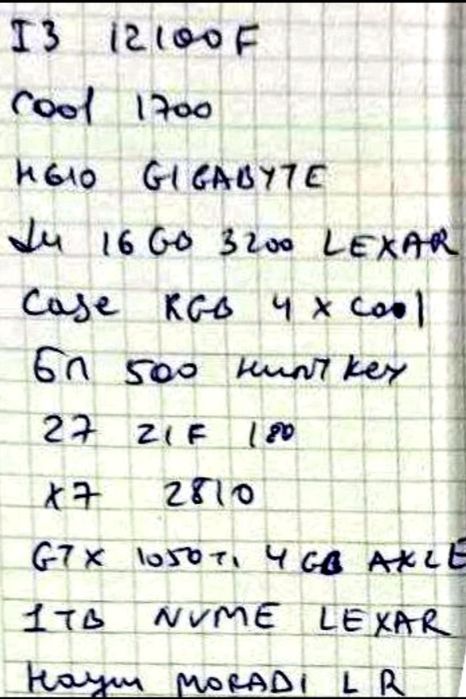 I3 12100F
Cool 1700
H610 GIGABYTE
D4 16GB 3200 LEXAR
Case RGB 4 x Cool
БП 500 HUNTKEY
27 21F 180
X7 2810
GTX 1050Ti 4GB AXLE
1TB NVME LEXAR
Hayш MORADI L R